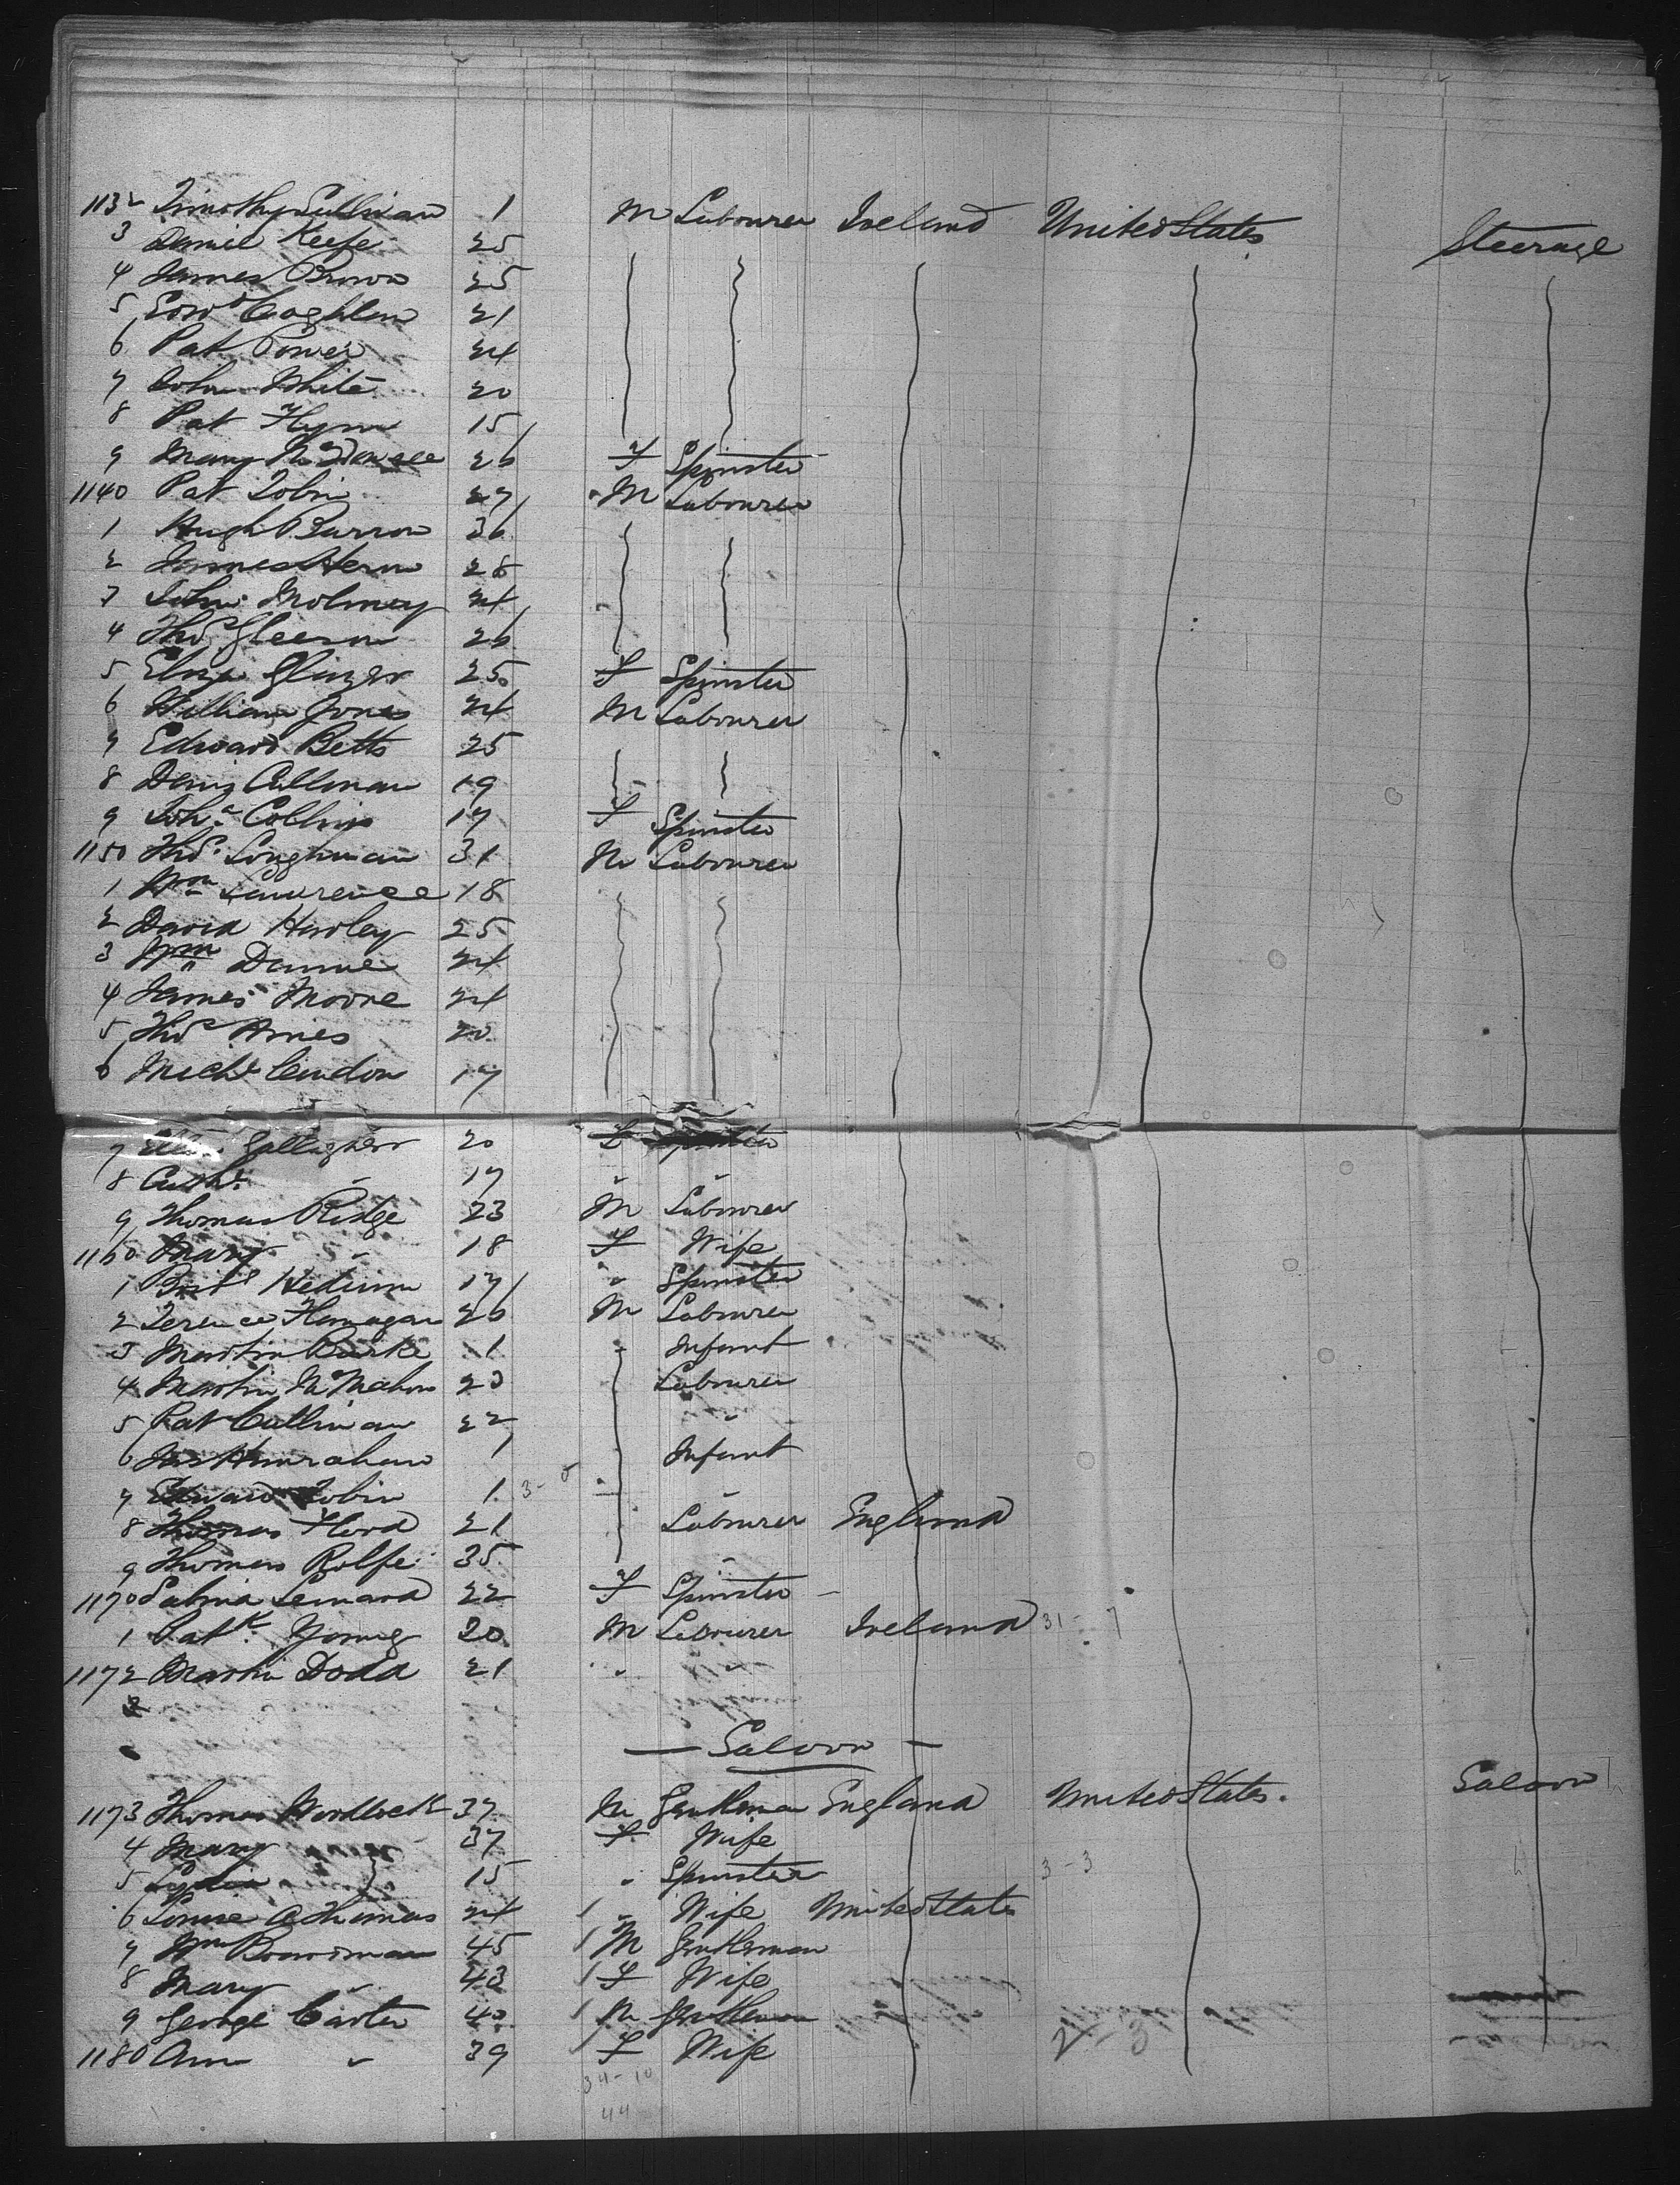 1132 Timothy Sullivan 1 M Labourer Ireland United States Steerage
3 Daniel Keefe 25
4 James Brown 25
5 Edwd Coghlan 21
6 Pat Power 24
7 John White 20
8 Pat Flynn 15
9 Mary 26 F Spinster
1140 Pat Tobin 27 M Labourer
1 Hugh Barron 36
2 James Hern 28
3 John Molmey 24
4 Thos Gleeson 26
5 Eliza 25 F Spinster
6 William Jones 24 M Labourer
7 Edward Betts 25
8 Denis 19
9 Joha Collins 17 F Spinster
1150 Thos Loughman 31 M Labourer
1 Wm Lawrence 18
2 David Hurley 25
3 Wm Dunne 24
4 James Moore 24
5 Thos Ames 20
6 Michl Condon 17
7 Gallagher 20 F Spinster
8 Cathe " 17 " "
9 Thomas Ridge 23 M Labourer
1160 Mary " 18 F Wife
1 Bridt 17 " Spinster
2 Terence Flanagan 26 M Labourer
3 Martin Burke 1 " Infant
4 Martin McMahon 23 Labourer
5 Pat Cullinan 22 "
6 Hanrahan 1 Infant
7 Edward Tobin 1 "
8 Thomas Flood 21 Labourer England
9 Thomas Rolfe 35 "
1170 Sabina Lenard 22 F Spinster
1 Patk Young 20 M Labourer Ireland 31-7
1172 Martin Dodd 21 " "
— Saloon —
1173 Thomas Woodlock 37 M Gentleman England United States. Saloon
4 Mary 37 F Wife
5 Lydia 15 " Spinster 3-3
6 Louise A Thomas 24 " Wife United States
7 Wm Boardman 45 M Gentleman
8 Mary " 43 F Wife
9 George Carter 40 M Gentleman
1180 Ann " 39 F Wife
34-10
44